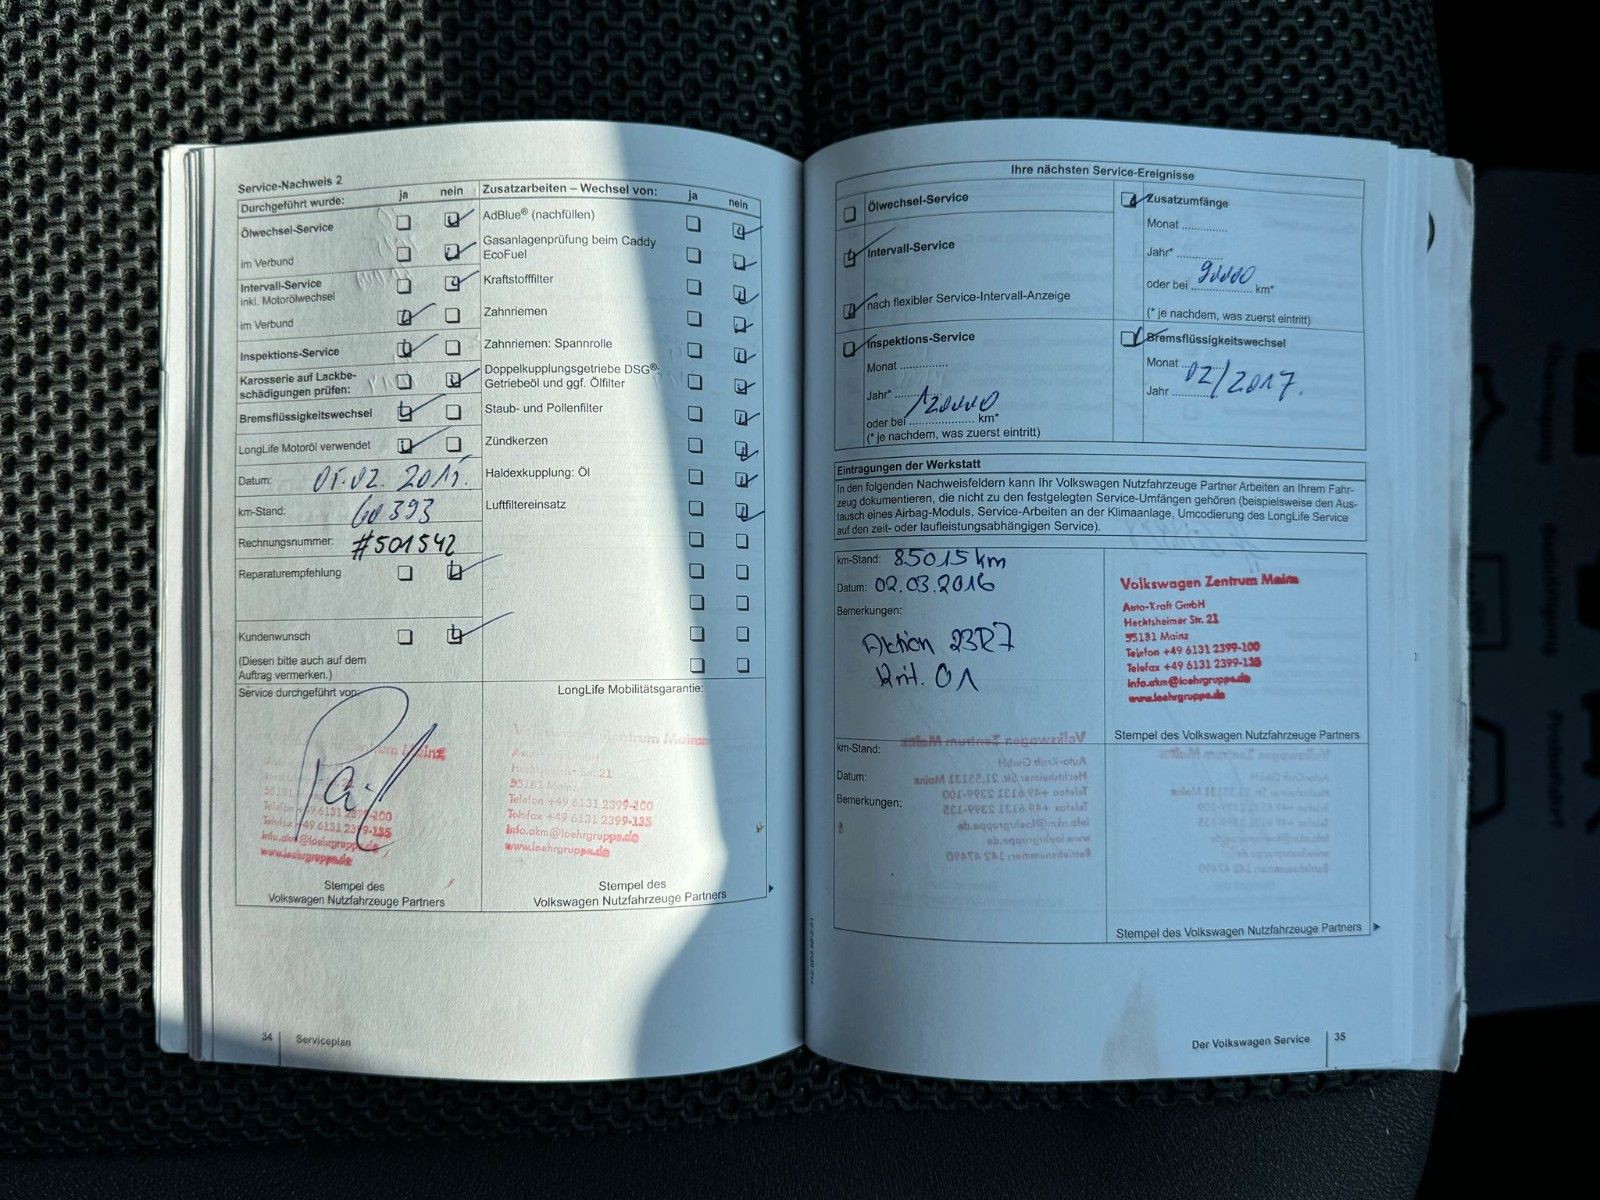 Service-Nachweis 2
Durchgeführt wurde: ja nein
Ölwechsel-Service
im Verbund
Intervall-Service
inkl. Motorölwechsel
im Verbund
Inspektions-Service
Karosserie auf Lackbe-
schädigungen prüfen:
Bremsflüssigkeitswechsel
LongLife Motoröl verwendet
Datum: 05.02.2015.
km-Stand: 60393
Rechnungsnummer: #501542
Reparaturempfehlung
Kundenwunsch
(Diesen bitte auch auf dem
Auftrag vermerken.)
Service durchgeführt von:
Mainz
Telefon +49 6131 2399-100
Telefax +49 6131 2399-135
info.akm@loehrgruppe.de
www.loehrgruppe.de
Stempel des
Volkswagen Nutzfahrzeuge Partners
Zusatzarbeiten – Wechsel von: ja nein
AdBlue® (nachfüllen)
Gasanlagenprüfung beim Caddy
EcoFuel
Kraftstofffilter
Zahnriemen
Zahnriemen: Spannrolle
Doppelkupplungsgetriebe DSG®:
Getriebeöl und ggf. Ölfilter
Staub- und Pollenfilter
Zündkerzen
Haldexkupplung: Öl
Luftfiltereinsatz
LongLife Mobilitätsgarantie:
Volkswagen Zentrum Mainz
Hechtsheimer Str. 21
55131 Mainz
Telefon +49 6131 2399-100
Telefax +49 6131 2399-135
info.akm@loehrgruppe.de
www.loehrgruppe.de
Stempel des
Volkswagen Nutzfahrzeuge Partners
34 Serviceplan
Ihre nächsten Service-Ereignisse
Ölwechsel-Service
Intervall-Service
nach flexibler Service-Intervall-Anzeige
Inspektions-Service
Monat ..............
Jahr* ..............
oder bei 120000 km*
(* je nachdem, was zuerst eintritt)
Zusatzumfänge
Monat ..............
Jahr* ..............
oder bei 90000 km*
(* je nachdem, was zuerst eintritt)
Bremsflüssigkeitswechsel
Monat 02/2017.
Jahr ..............
Eintragungen der Werkstatt
In den folgenden Nachweisfeldern kann Ihr Volkswagen Nutzfahrzeuge Partner Arbeiten an Ihrem Fahr-
zeug dokumentieren, die nicht zu den festgelegten Service-Umfängen gehören (beispielsweise den Aus-
tausch eines Airbag-Moduls, Service-Arbeiten an der Klimaanlage, Umcodierung des LongLife Service
auf den zeit- oder laufleistungsabhängigen Service).
km-Stand: 85015 km
Datum: 02.03.2016
Bemerkungen:
Aktion 23R7
Krit. 01
Volkswagen Zentrum Mainz
Auto-Kraft GmbH
Hechtsheimer Str. 21
55131 Mainz
Telefon +49 6131 2399-100
Telefax +49 6131 2399-135
info.akm@loehrgruppe.de
www.loehrgruppe.de
Stempel des Volkswagen Nutzfahrzeuge Partners
km-Stand:
Datum:
Bemerkungen:
Stempel des Volkswagen Nutzfahrzeuge Partners
Der Volkswagen Service 35